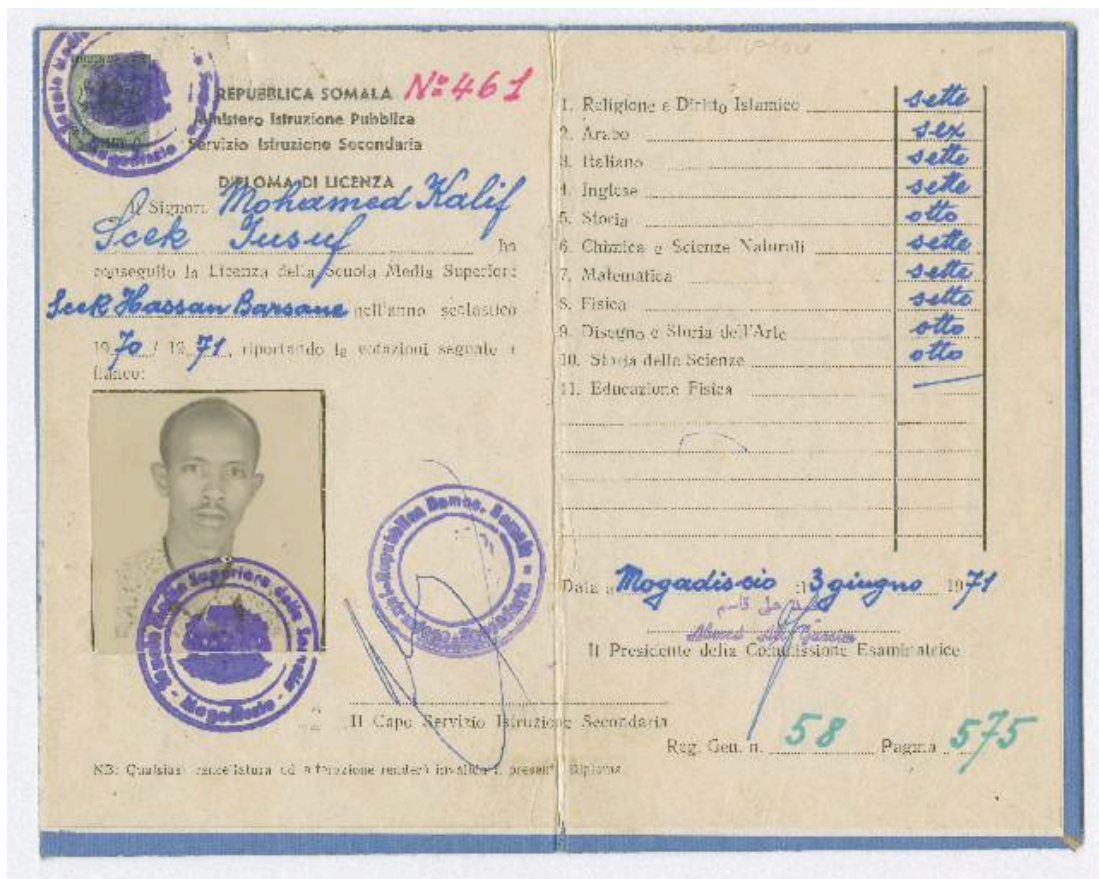 REPUBBLICA SOMALA Nº 461
Ministero Istruzione Pubblica
Servizio Istruzione Secondaria
DIPLOMA DI LICENZA
Il Signor: Mohamed Kalif
Scek Iusuf ha
conseguito la Licenza della Scuola Media Superiore
Scek Hassan Barsane nell'anno scolastico
1970 / 1971, riportando le votazioni segnate a
fianco:
Repubblica Democ. Somala
Scuola Media Superiore della Somalia - Mogadiscio
Il Capo Servizio Istruzione Secondaria
NB: Qualsiasi cancellatura od alterazione renderà invalido il presente Diploma
1. Religione e Diritto Islamico sette
2. Arabo sex
3. Italiano sette
4. Inglese sette
5. Storia otto
6. Chimica e Scienze Naturali sette
7. Matematica sette
8. Fisica sette
9. Disegno e Storia dell'Arte otto
10. Storia delle Scienze otto
11. Educazione Fisica
Data a Mogadiscio 3 giugno 1971
Il Presidente della Commissione Esaminatrice
Reg. Gen. n. 58 Pagina 575